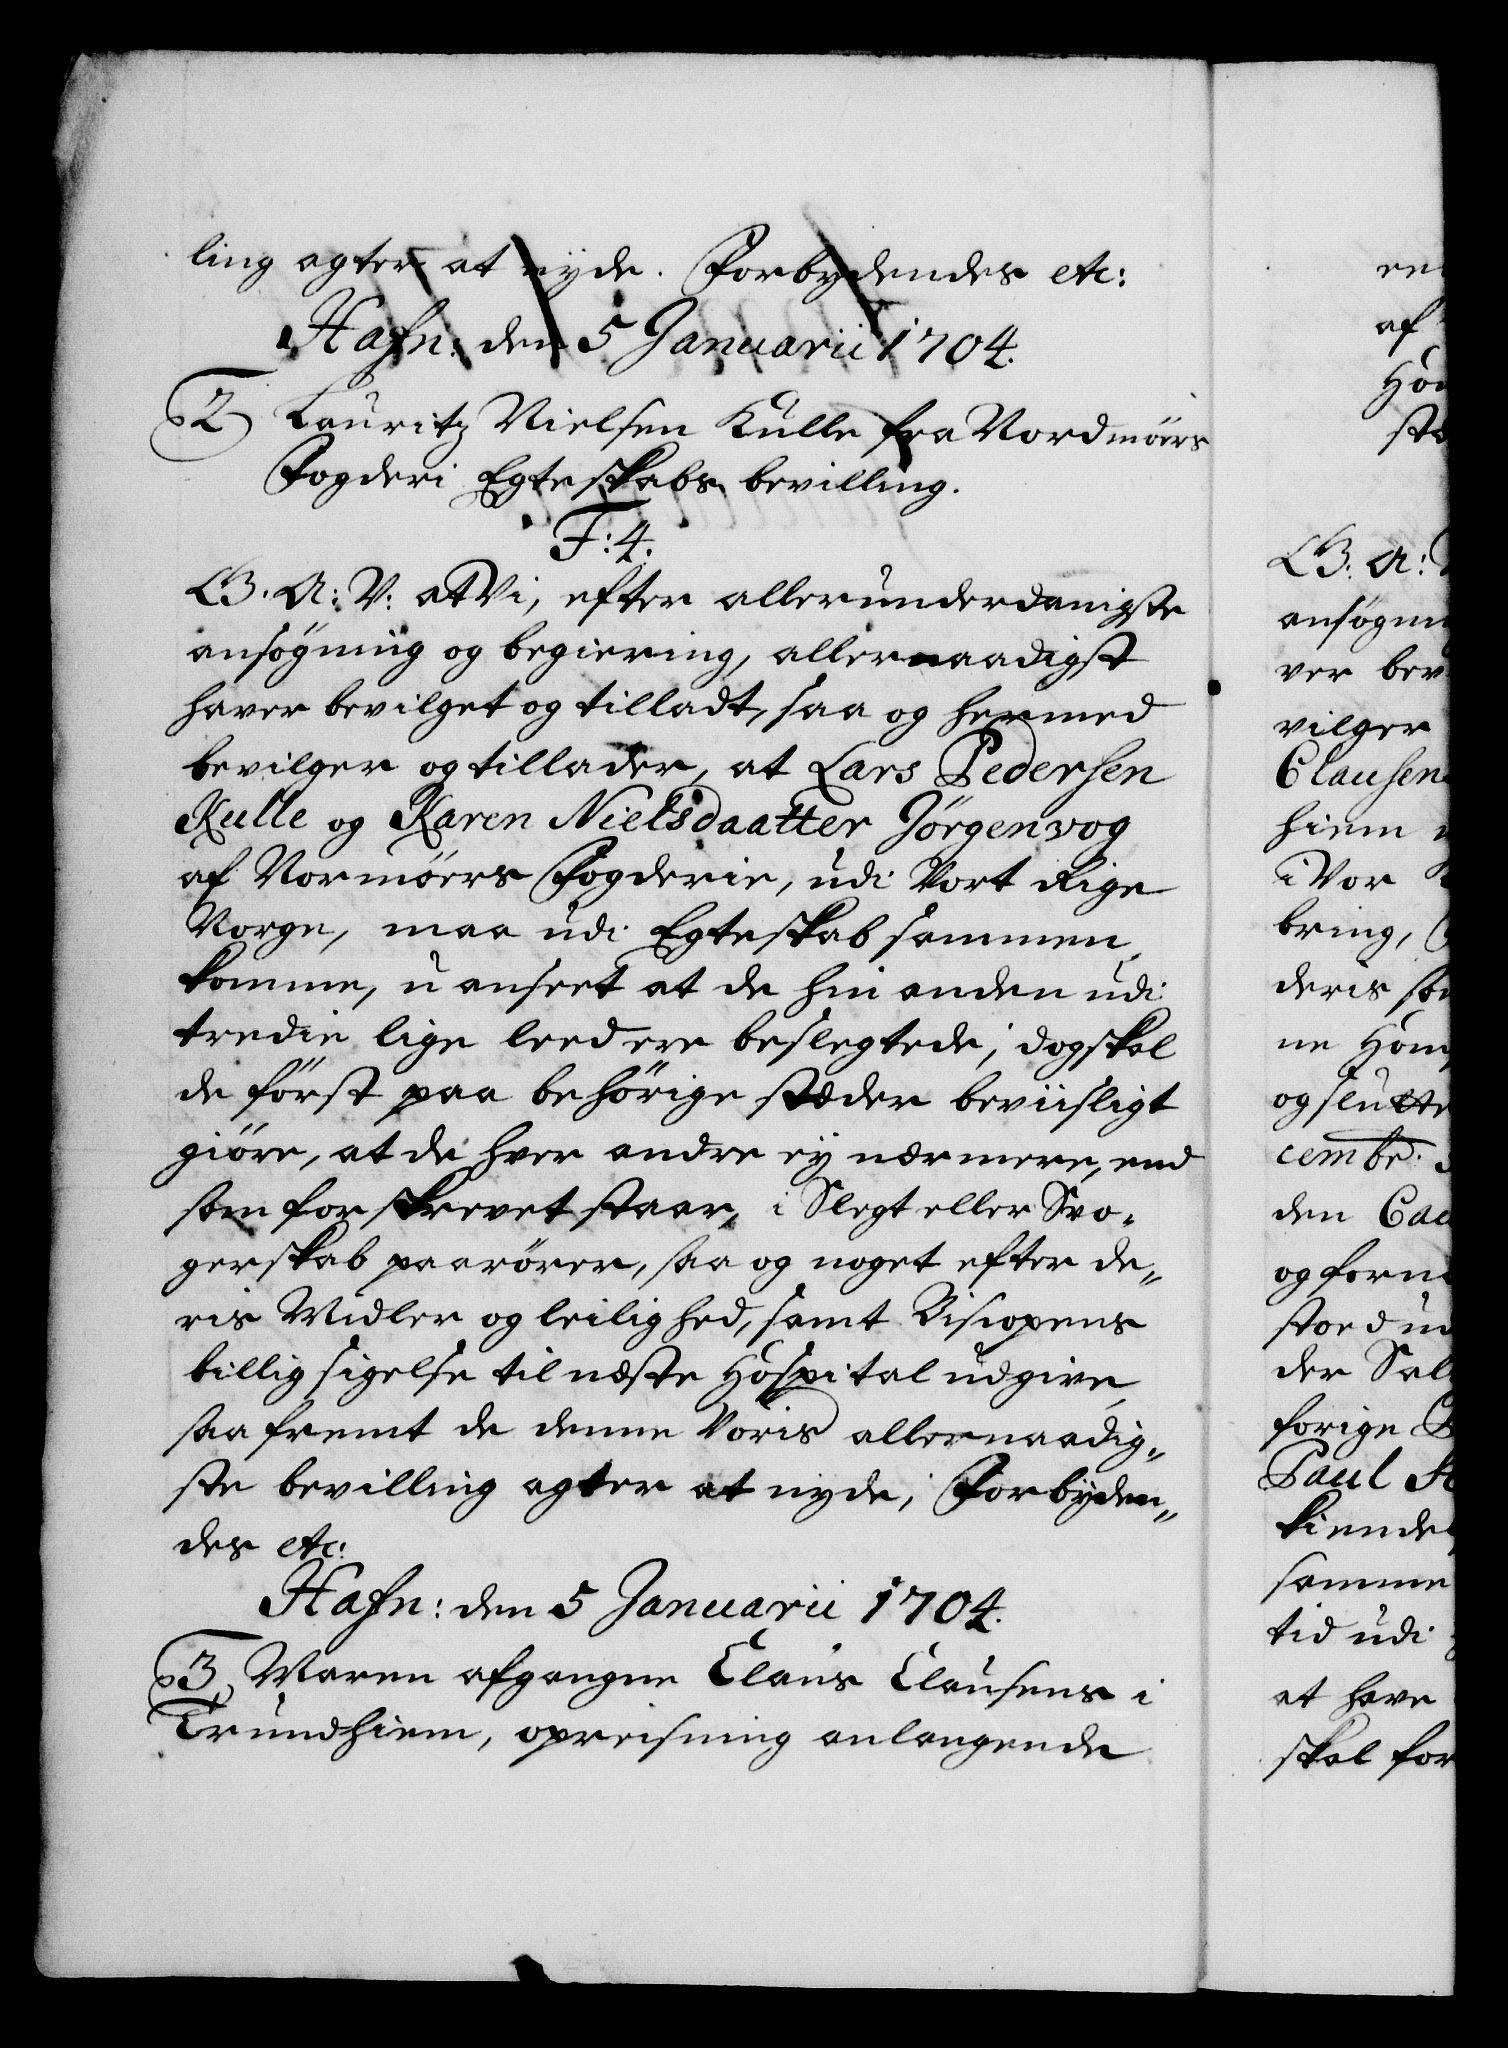 ling agter at nyde. Forbydendes etc:
Hafn: den 5 Januarii 1704.
2 Lauritz Nielsen Kulle fra Nordmörs
Fogderi Egteskabs bevilling.
F: 4.
G. A: V: at Vi, efter allerunderdanigste
ansögning og begiering, allernaadigst
haver bevilget og tilladt, saa og hermed
bevilger og tillader, at Lars Pedersen
Kulle og Karen Nielsdaatter Jörgenvog
af Normöers Fogderie, udi Vort Rige
Norge, maa udi Egteskab sammen
komme, u anseet at de hin anden udi
tredie lige leed ere beslegtede; dog skal
de först paa behörige stæder beviisligt
giöre, at de hver andre ey nærmere, end
som forskrevet staar, i Slegt eller Svo-
gerskab paarörer, saa og noget efter de„
ris Midler og leilighed, samt Biscopens
billig sigelse til næste Hospital udgive,
saa fremt de denne Voris allernaadig„
ste bevilling agter at nyde; Forbyden„
des etc:
Hafn: den 5 Januarii 1704.
3 Maren afgangne Claus Clausens i
Trundhiem, opreisning anlangende
af
G. A:
ver bev
vilger
Clausen
hiem
i Vor
bring,
deris
ne
og slutte
cembr:
den
og
der
forige
Paul
kiende
samme
tid udi
at have
skal for